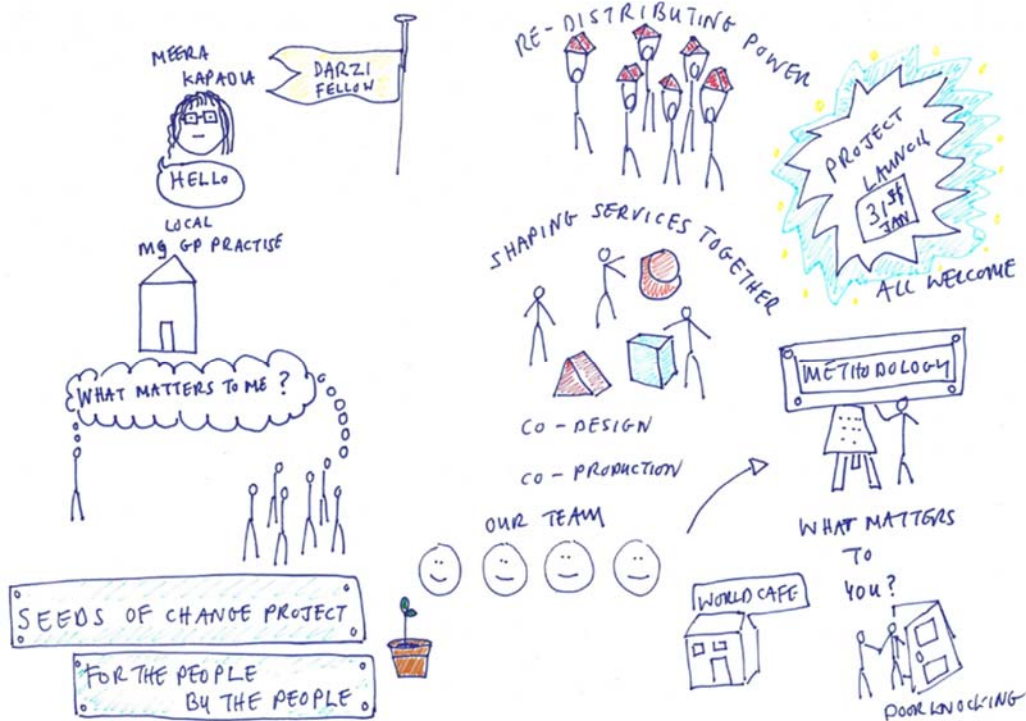 MEERA
KAPADIA
DARZI
FELLOW
HELLO
LOCAL
My GP PRACTISE
WHAT MATTERS TO ME ?
SEEDS OF CHANGE PROJECT
FOR THE PEOPLE
BY THE PEOPLE
RE-DISTRIBUTING POWER
SHAPING SERVICES TOGETHER
CO-DESIGN
CO-PRODUCTION
OUR TEAM
PROJECT
LAUNCH
31st
JAN
ALL WELCOME
METHODOLOGY
WHAT MATTERS
TO
YOU?
WORLD CAFE
DOOR KNOCKING